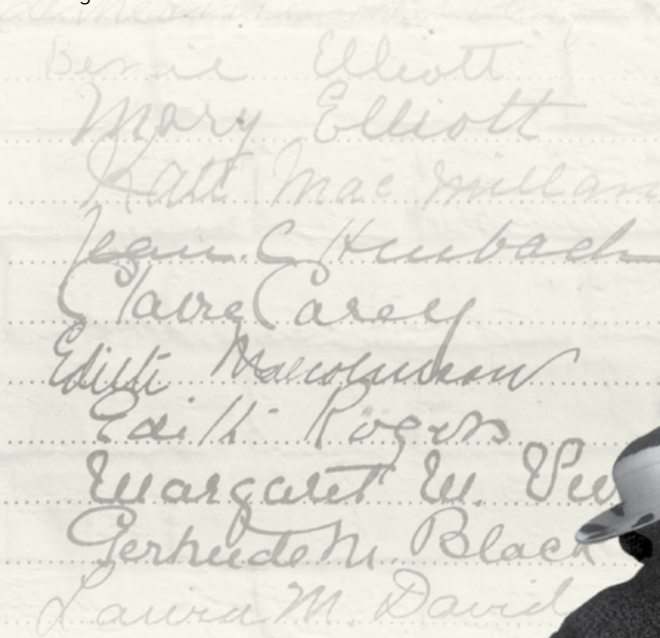 Bernie Elliott
Mary Elliott
Kate MacMillan
Jean C
Claire Carey
Edith
Edith Rogers
Margaret M.
Gertrude M. Black
Laura M. David